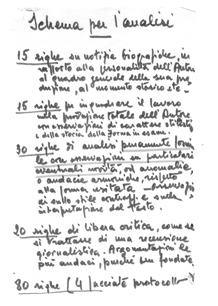 Schema per l'analisi
15 righe su notizie biografiche, in
rapporto alla personalità dell'Autore
al quadro generale della sua pro
duzione, al momento storico etc.
15 righe per inquadrare il lavoro
nella produzione totale dell'Autore
con osservazioni di carattere stilistico
e della storia della forma in esame.
30 righe di analisi puramente formale
con osservazioni su particolari
eventuali novità, od anomalie
o audacie armoniche, rispetto
alla forma usitata
sullo stile e sulla
interpretazione del testo.
20 righe di libera critica, come se
si trattasse di una recensione
giornalistica. Argomentazioni le
più audaci, purché ben fondate
80 righe (4 facciate protocollo)